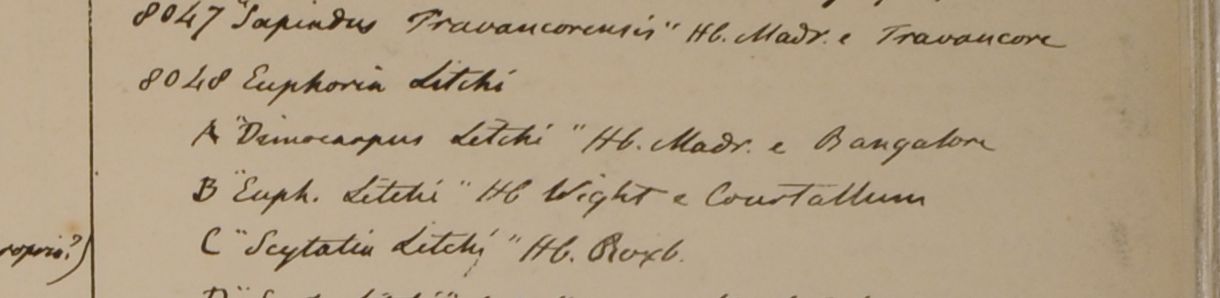 8047 "Sapindus Travancorensis" Hb. Madr. e Travancore
8048 Euphoria Litchi
A "Dimocarpus Litchi" Hb. Madr. e Bangalore
B "Euph. Litchi" Hb Wight e Courtallum
ropria?)
C "Scytalia Litchi" Hb. Roxb.